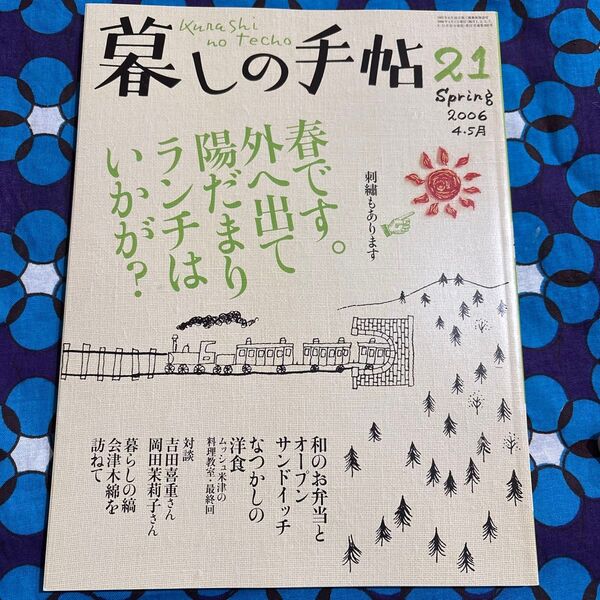 Kurashi
no techo
暮しの手帖
21
Spring
2006
4.5月
春です。
外へ出て
陽だまり
ランチは
いかが？
刺繍もあります
和のお弁当と
オープン
サンドイッチ
なつかしの
洋食
ムッシュ米津の
料理教室・最終回
対談
吉田喜重さん
岡田茉莉子さん
暮らしの縞
会津木綿を
訪ねて